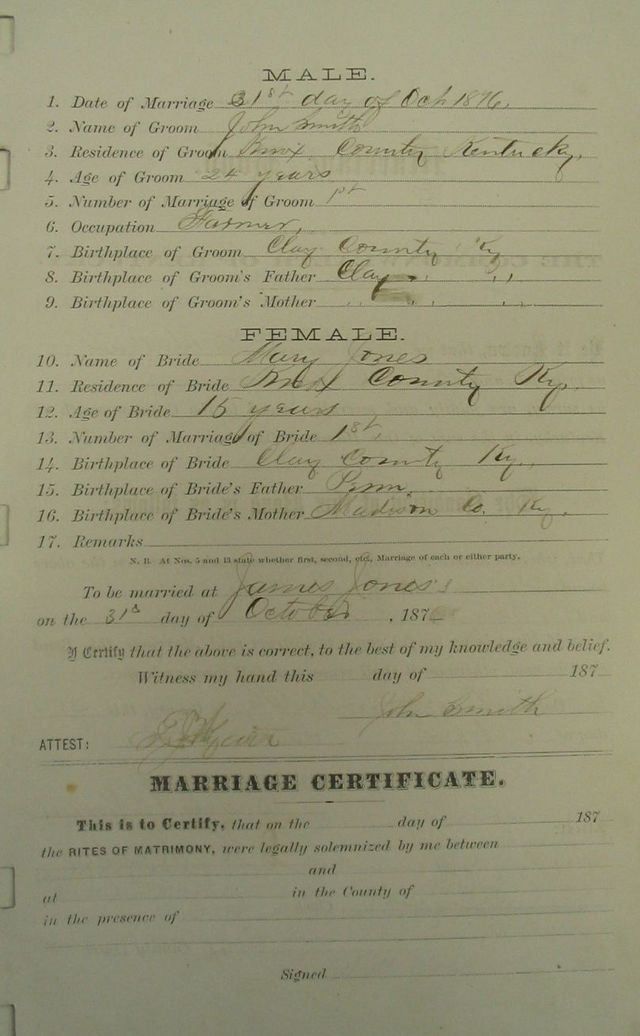 MALE.
1. Date of Marriage 31st day of Oct 1876,
2. Name of Groom John Smith
3. Residence of Groom Knox County Kentucky,
4. Age of Groom 24 years
5. Number of Marriage of Groom 1st
6. Occupation Farmer,
7. Birthplace of Groom Clay County Ky
8. Birthplace of Groom's Father Clay " "
9. Birthplace of Groom's Mother " " "
FEMALE.
10. Name of Bride Mary Jones
11. Residence of Bride Knox County Ky.
12. Age of Bride 15 years
13. Number of Marriage of Bride 1st,
14. Birthplace of Bride Clay County Ky.,
15. Birthplace of Bride's Father
16. Birthplace of Bride's Mother Madison Co. Ky.
17. Remarks
N. B. At Nos. 5 and 13 state whether first, second, etc., Marriage of each or either party.
To be married at James Jones's
on the 31st day of October, 1876
I Certify that the above is correct, to the best of my knowledge and belief.
Witness my hand this day of 187
John Smith
ATTEST:
MARRIAGE CERTIFICATE.
This is to Certify, that on the day of 187
the RITES OF MATRIMONY, were legally solemnized by me between
and
at in the County of
in the presence of
Signed